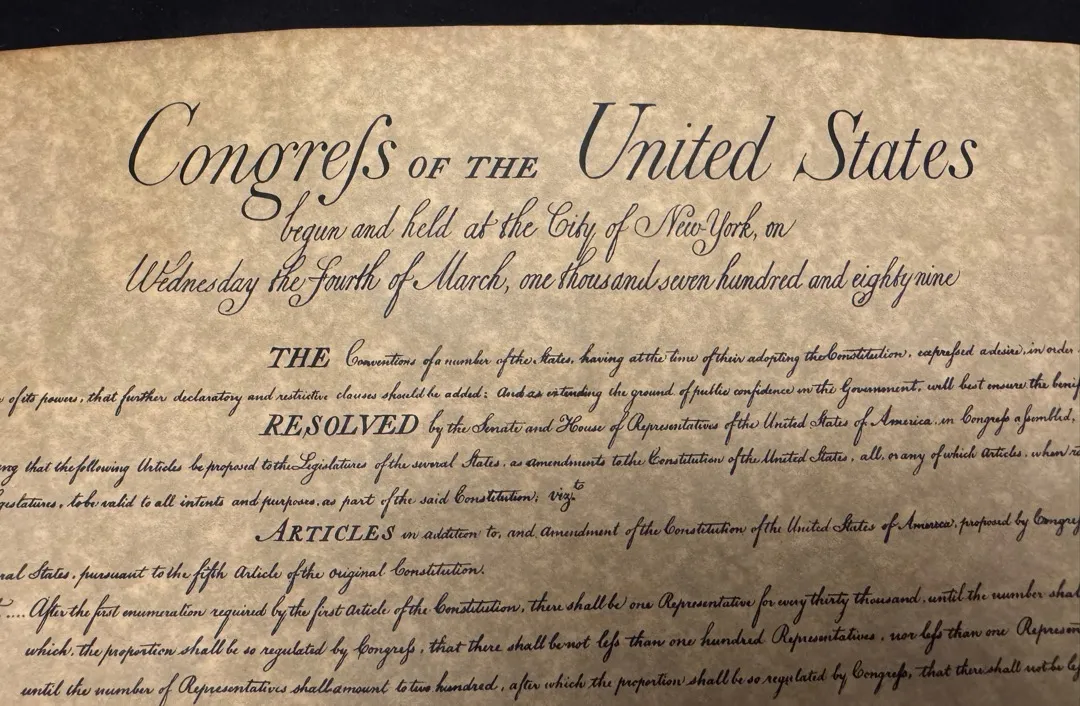 Congreſs OF THE United States
begun and held at the City of New-York, on
Wednesday the fourth of March, one thousand seven hundred and eighty nine
THE Conventions of a number of the States, having at the time of their adopting the Constitution, expreſsed a desire, in order
of its powers, that further declaratory and restrictive clauses should be added: And as extending the ground of public confidence in the Government, will best ensure the benef
RESOLVED by the Senate and House of Representatives of the United States of America, in Congreſs aſsembled,
ng that the following Articles be proposed to the Legislatures of the several States, as amendments to the Constitution of the United States, all, or any of which Articles, when ra
gislatures, to be valid to all intents and purposes, as part of the said Constitution; vizt.
ARTICLES in addition to, and Amendment of the Constitution of the United States of America, proposed by Congreſ
ral States, pursuant to the fifth Article of the original Constitution.
.... After the first enumeration required by the first Article of the Constitution, there shall be one Representative for every thirty thousand, until the number shal
which, the proportion shall be so regulated by Congreſs, that there shall be not leſs than one hundred Representatives, nor leſs than one Represen
until the number of Representatives shall amount to two hundred, after which the proportion shall be so regulated by Congreſs, that there shall not be leſ